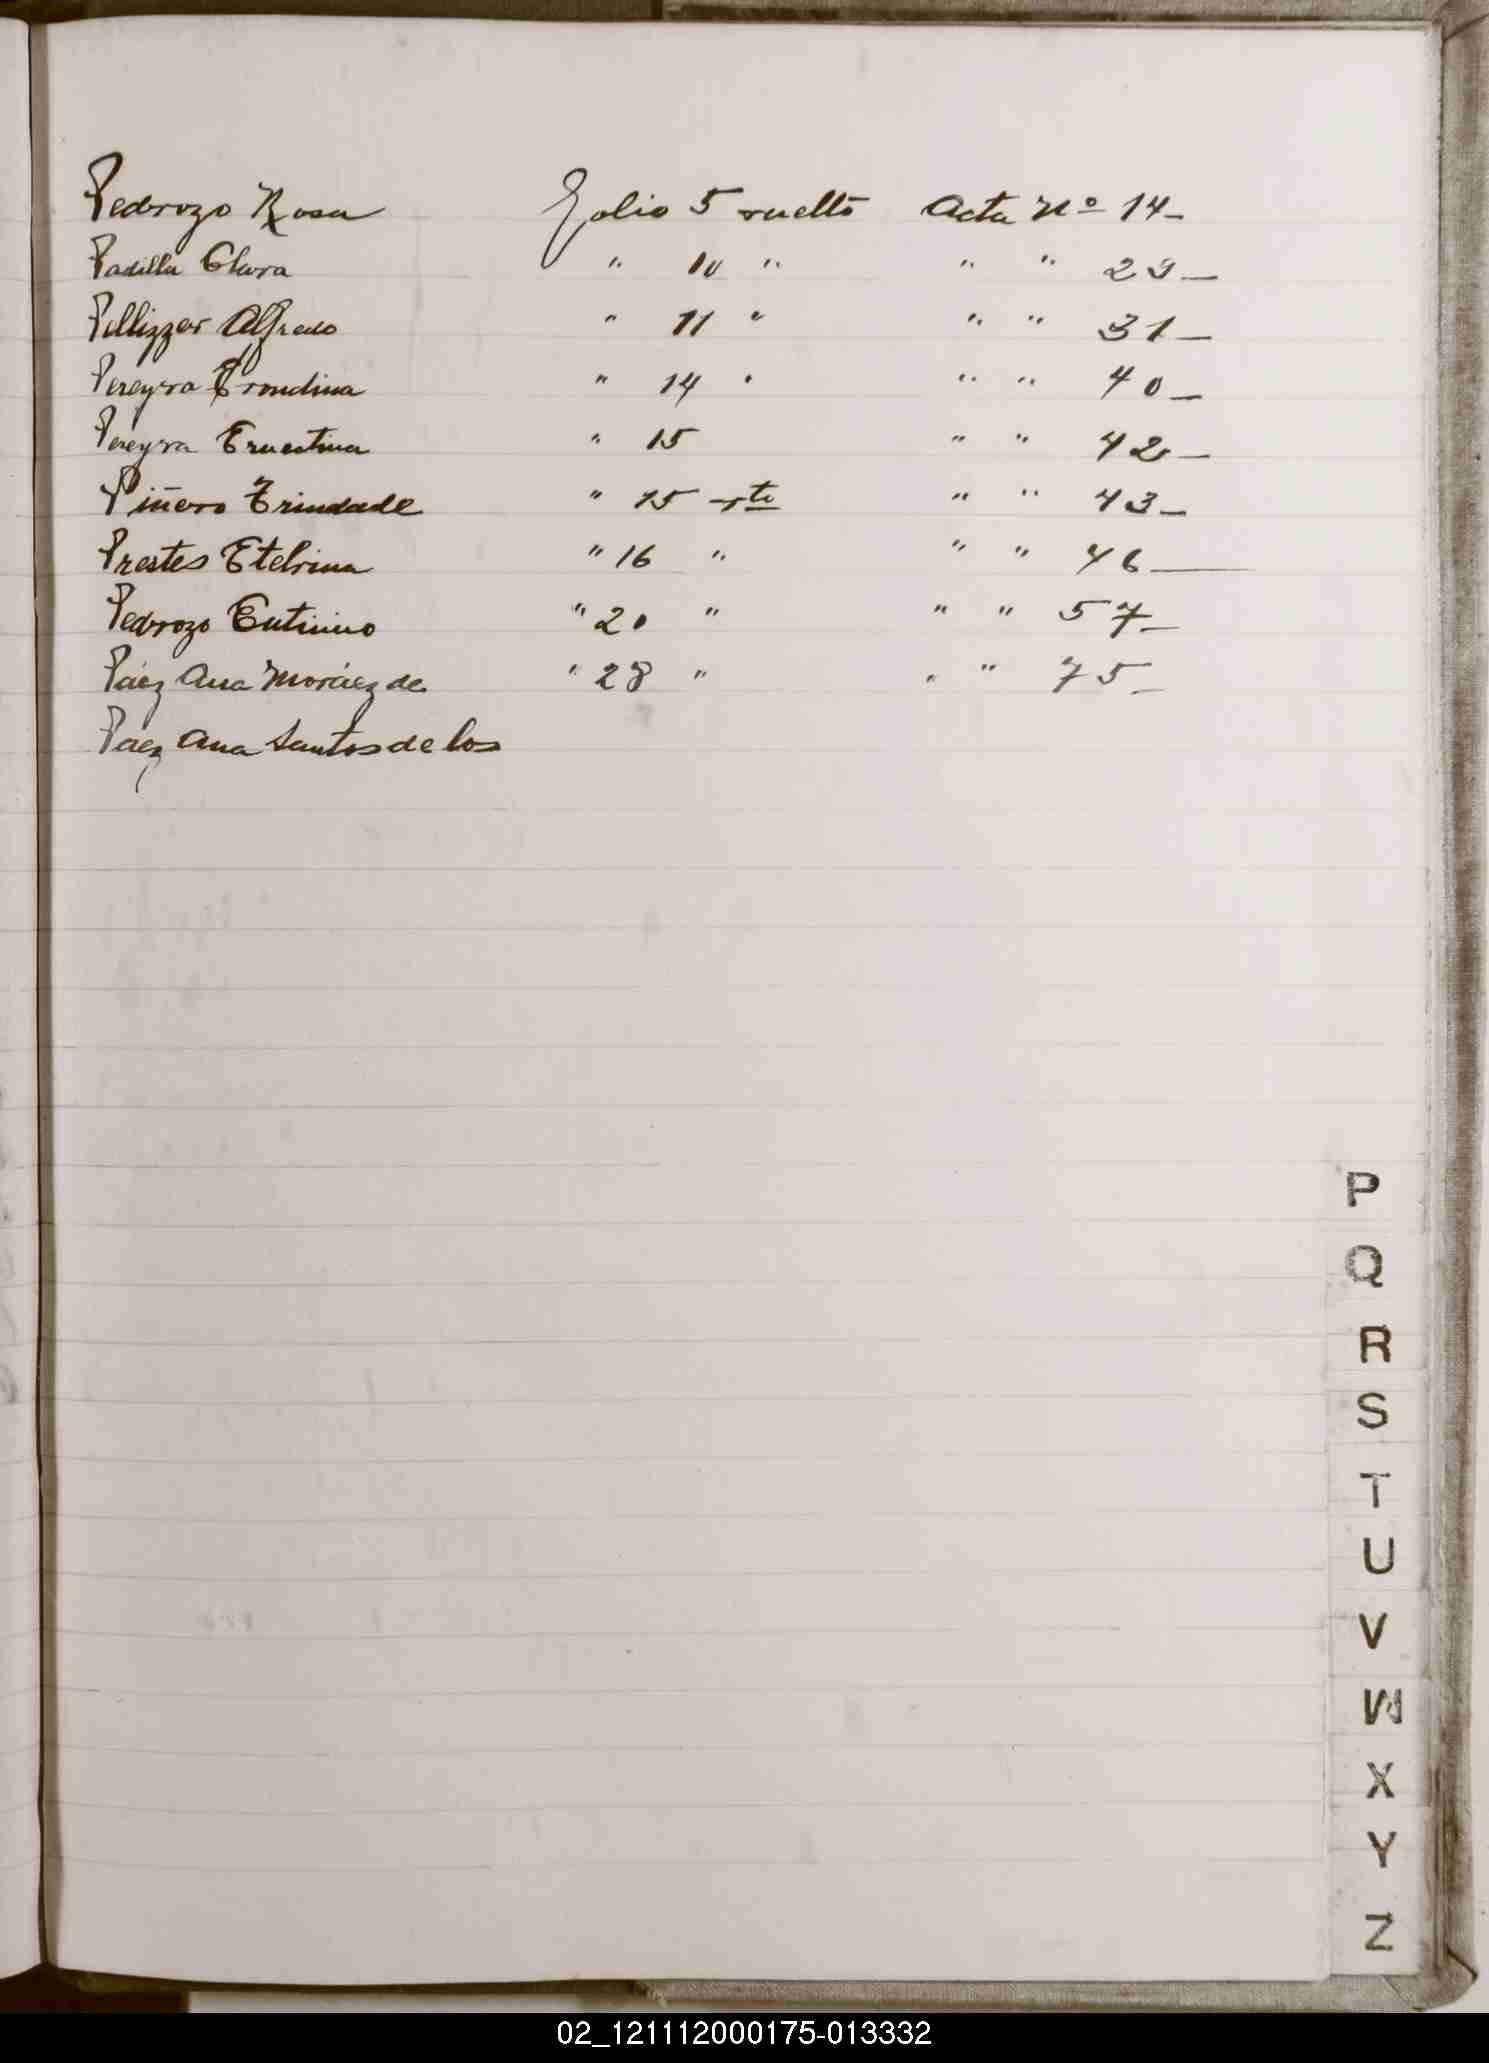 Pedrozo Rosa Folio 5 vuelto Acta Nº 14-
Padilla Clara " 10 " " " 29-
Pellizzer Alfredo " 11 " " " 31-
Pereyra Erondina " 14 " " " 40-
Pereyra Ernestina " 15 " " 42-
Piñero Trindade " 15 vto " " 43-
Prestes Etelvina " 16 " " " 46-
Pedrozo " 20 " " " 57-
Páez Ana Moráez de " 28 " " " 75-
Paez Ana Santos de los
P
Q
R
S
T
U
V
W
X
Y
Z
02_121112000175-013332